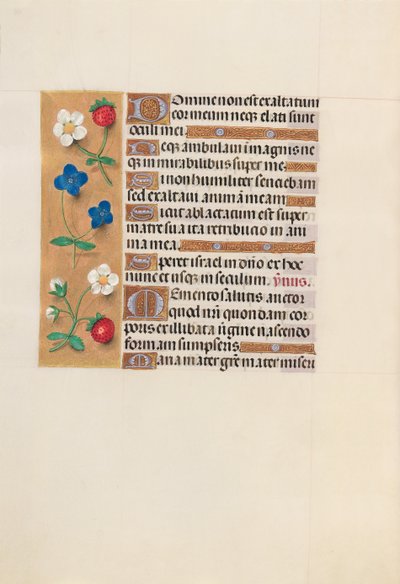 Domine non est exaltatum
cor meum neqȝ elati sunt
oculi mei.
Neqȝ ambulavi in magnis ne
qȝ in mirabilibus super me.
Si non humiliter sentiebam
sed exaltavi animā meam
Sicut ablactatum est super
matre sua ita retributio in ani
ma mea.
Speret israel in dn̄o ex hoc
nunc et usqȝ in seculum. ymnus.
Memento salutis auctor
quod nr̄i quondam cor
poris ex illibata v̄gine nascendo
formam sumpseris
Maria mater gr̄e mater miseri